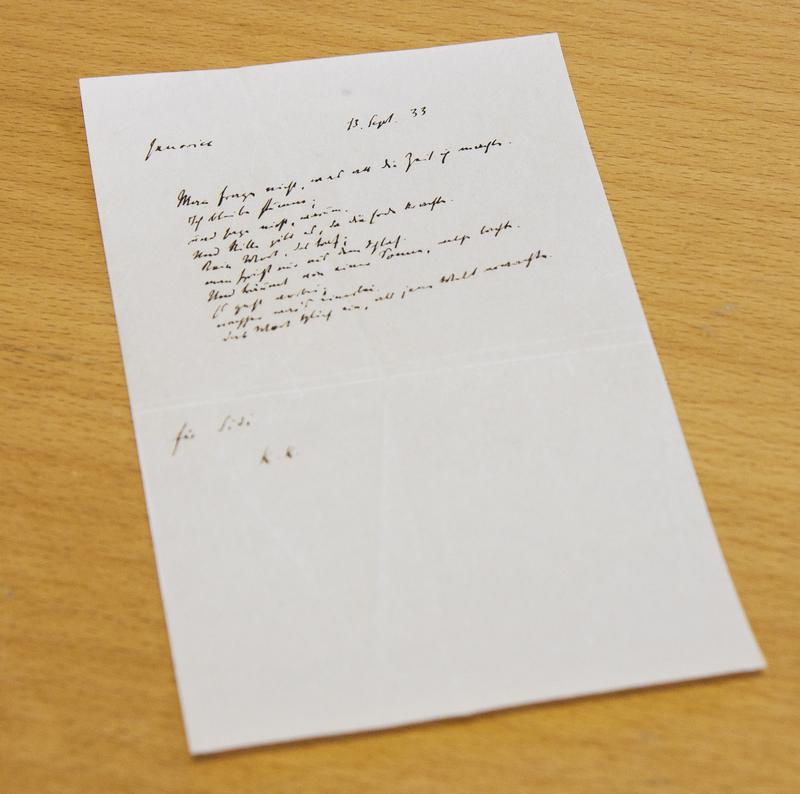 Janowitz
13. Sept. 33
Man frage nicht, was all die Zeit ich machte.
Ich bleibe stumm;
und sage nicht, warum.
Und Stille gibt es, da die Erde krachte.
Kein Wort, das traf;
man spricht nur aus dem Schlaf.
Und träumt von einer Sonne, welche lachte.
Es geht vorbei;
nachher war's einerlei.
Das Wort schlief ein, als jene Welt erwachte.
für Sidi
K. K.